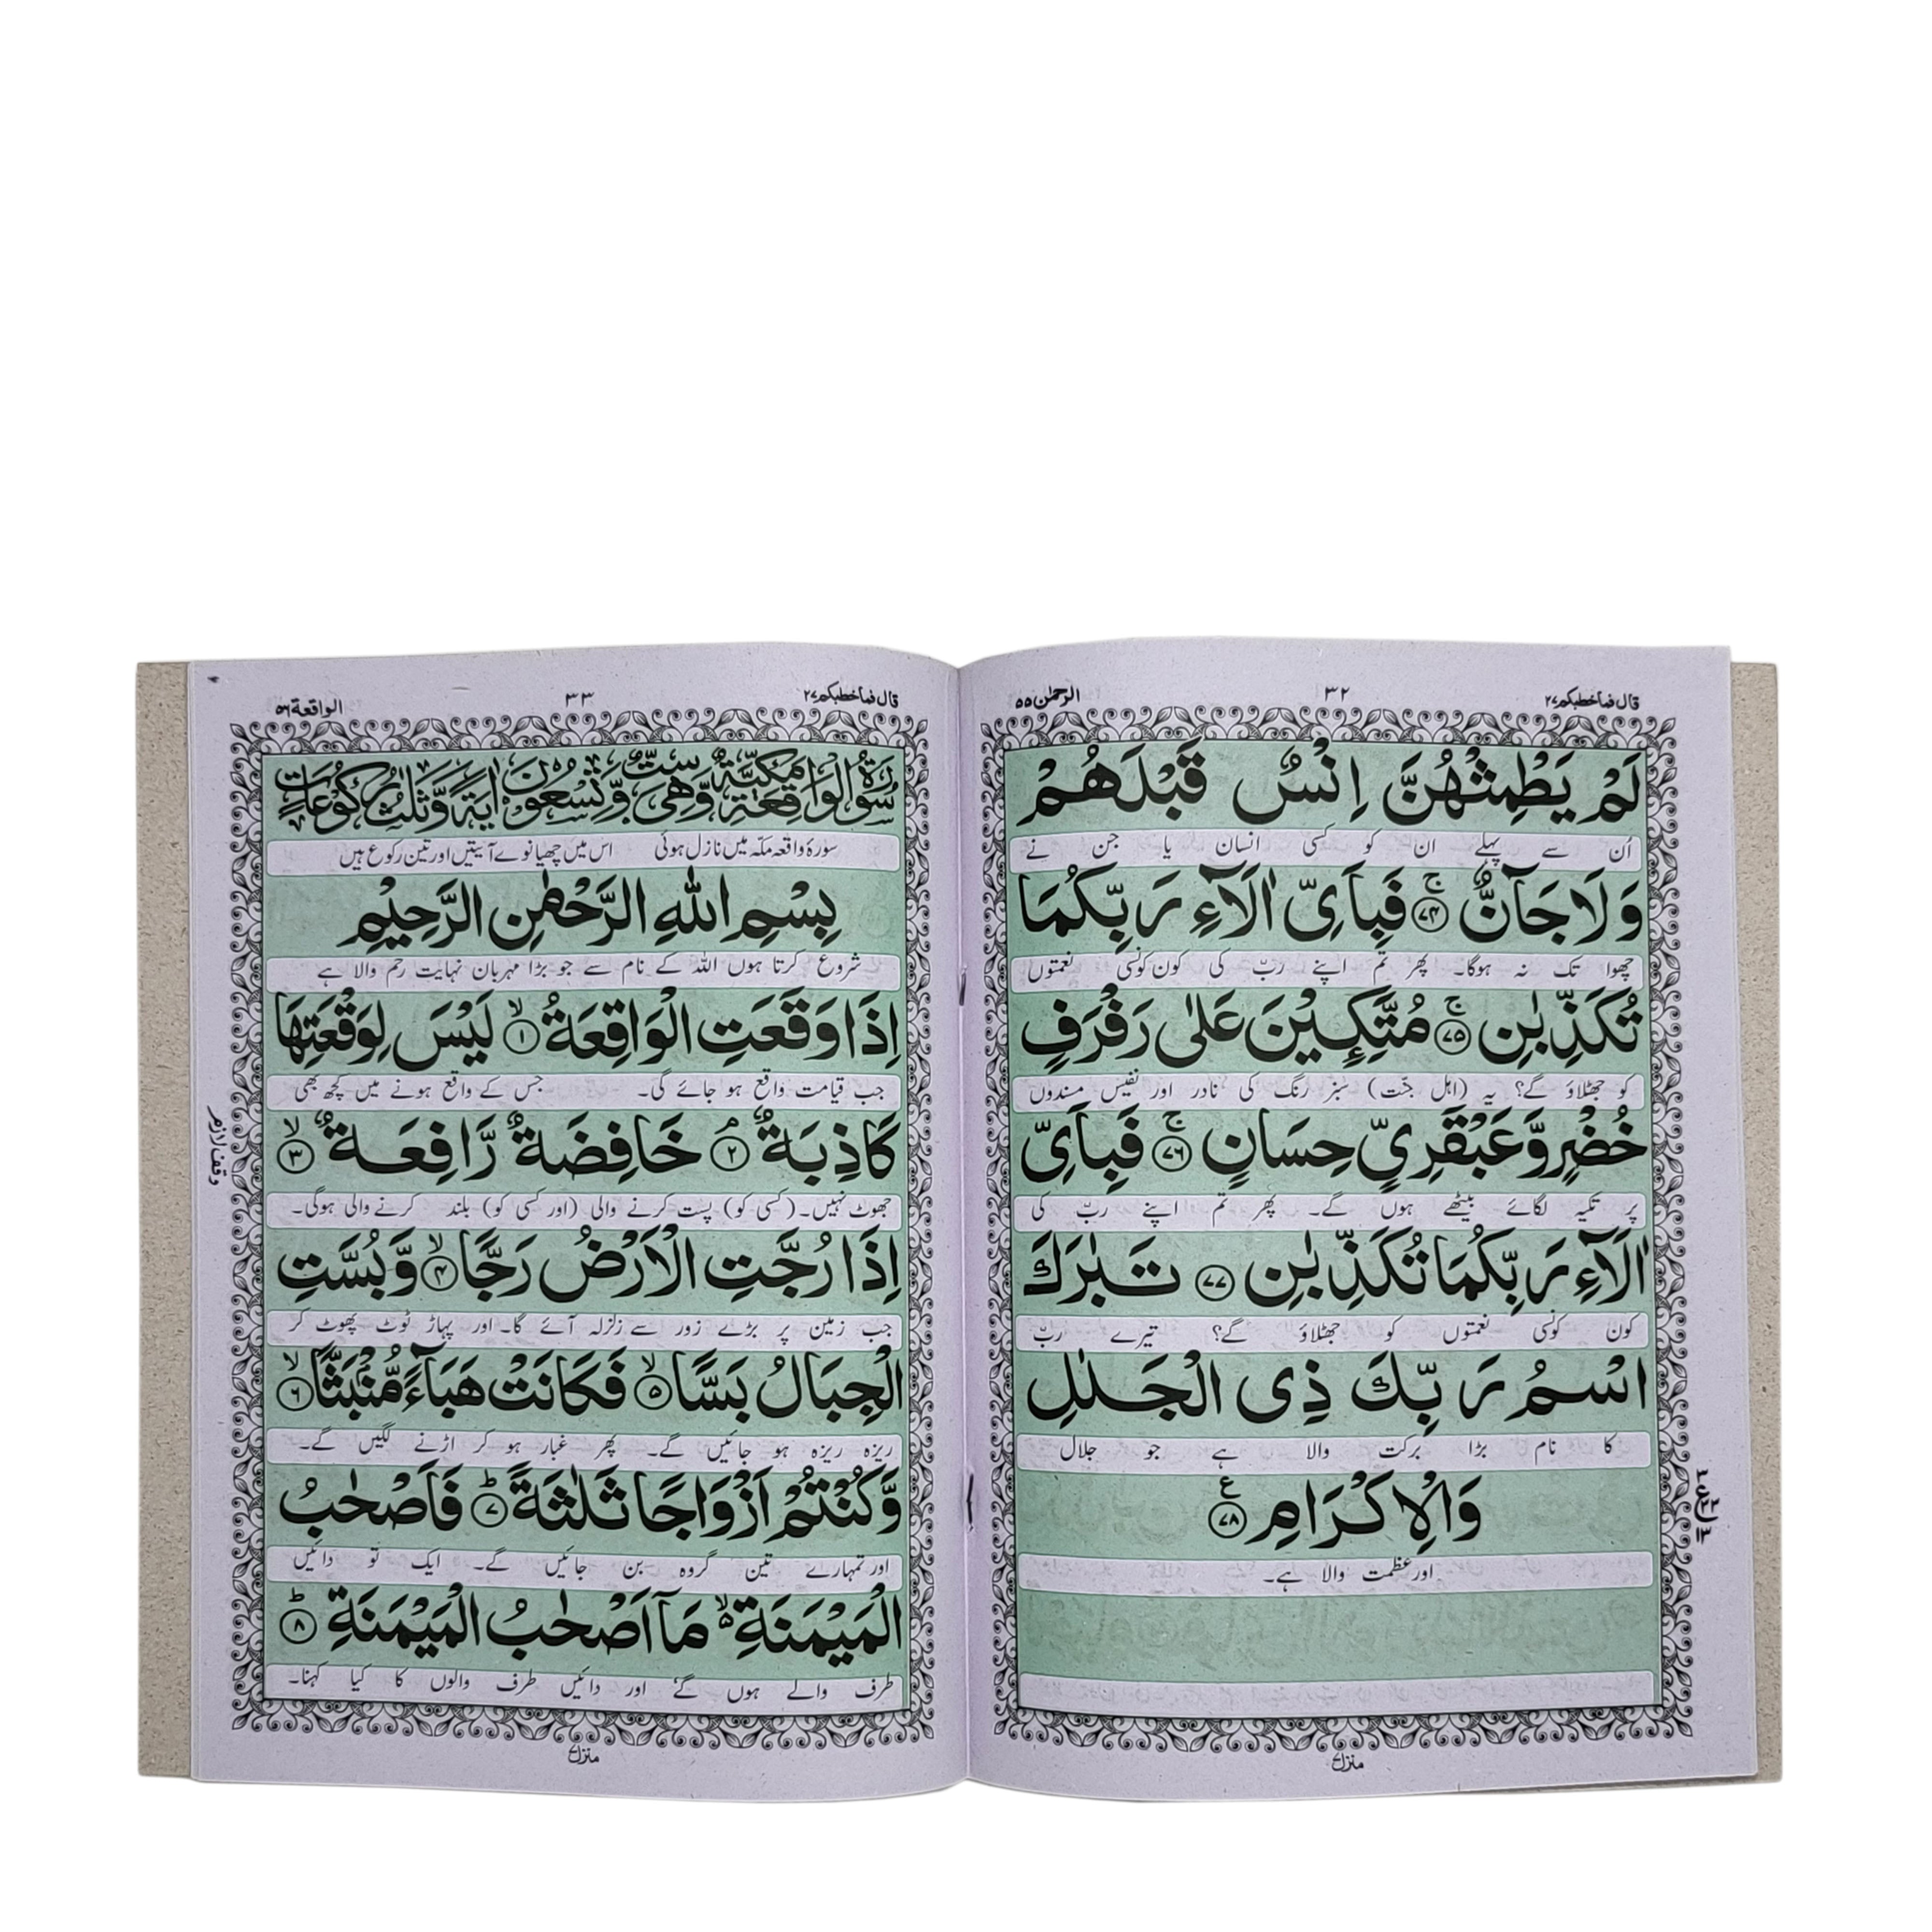 قال فما خطبکم ۲۷
۳۲
الرحمٰن ۵۵
لَمْ یَطْمِثْهُنَّ اِنْسٌ قَبْلَهُمْ
اُن سے پہلے ان کو کسی انسان یا جن نے
وَلَا جَآنٌّ ۚ ﴿۷۴﴾ فَبِاَیِّ اٰلَآءِ رَبِّكُمَا
چھوا تک نہ ہوگا۔ پھر تم اپنے ربّ کی کون کونسی نعمتوں
تُكَذِّبٰنِ ۚ ﴿۷۵﴾ مُتَّكِـِٕیْنَ عَلٰی رَفْرَفٍ
کو جھٹلاؤ گے؟ یہ (اہل جنّت) سبز رنگ کی نادر اور نفیس مسندوں
خُضْرٍ وَّعَبْقَرِیٍّ حِسَانٍ ۚ ﴿۷۶﴾ فَبِاَیِّ
پر تکیہ لگائے بیٹھے ہوں گے۔ پھر تم اپنے ربّ کی
اٰلَآءِ رَبِّكُمَا تُكَذِّبٰنِ ﴿۷۷﴾ تَبٰرَكَ
کون کونسی نعمتوں کو جھٹلاؤ گے؟ تیرے ربّ
اسْمُ رَبِّكَ ذِی الْجَلٰلِ
کا نام بڑا برکت والا ہے جو جلال
وَالْاِكْرَامِ ﴿۷۸﴾ ع
اور عظمت والا ہے۔
منزل ۷
قال فما خطبکم ۲۷
۳۳
الواقعة ۵۶
سُوْرَةُ الْوَاقِعَةِ مَكِّیَّةٌ وَّهِیَ سِتٌّ وَّتِسْعُوْنَ اٰیَةً وَّثَلٰثُ رُكُوْعَاتٍ
سورۂ واقعہ مکّہ میں نازل ہوئی اس میں چھیانوے آیتیں اور تین رکوع ہیں
بِسْمِ اللّٰهِ الرَّحْمٰنِ الرَّحِیْمِ
شروع کرتا ہوں اللہ کے نام سے جو بڑا مہربان نہایت رحم والا ہے
اِذَا وَقَعَتِ الْوَاقِعَةُ ۙ ﴿۱﴾ لَیْسَ لِوَقْعَتِهَا
جب قیامت واقع ہو جائے گی۔ جس کے واقع ہونے میں کچھ بھی
كَاذِبَةٌ ۘ ﴿۲﴾ خَافِضَةٌ رَّافِعَةٌ ۙ ﴿۳﴾
جھوٹ نہیں۔ (کسی کو) پست کرنے والی (اور کسی کو) بلند کرنے والی ہوگی۔
وقف لازم
اِذَا رُجَّتِ الْاَرْضُ رَجًّا ۙ ﴿۴﴾ وَّبُسَّتِ
جب زمین پر بڑے زور سے زلزلہ آئے گا۔ اور پہاڑ ٹوٹ پھوٹ کر
الْجِبَالُ بَسًّا ۙ ﴿۵﴾ فَكَانَتْ هَبَآءً مُّنْۢبَثًّا ۙ ﴿۶﴾
ریزہ ریزہ ہو جائیں گے۔ پھر غبار ہو کر اڑنے لگیں گے۔
وَّكُنْتُمْ اَزْوَاجًا ثَلٰثَةً ؕ ﴿۷﴾ فَاَصْحٰبُ
اور تمہارے تین گروہ بن جائیں گے۔ ایک تو دائیں
الْمَیْمَنَةِ ۙ۬ مَاۤ اَصْحٰبُ الْمَیْمَنَةِ ؕ ﴿۸﴾
طرف والے ہوں گے اور دائیں طرف والوں کا کیا کہنا۔
منزل ۷